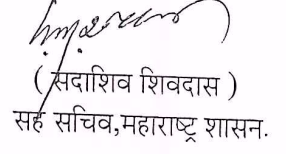 ( सदाशिव शिवदास )
सह सचिव,महाराष्ट्र शासन.